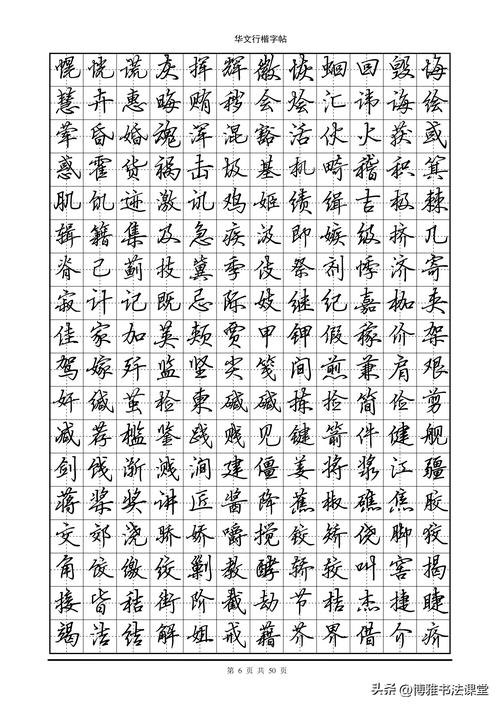 华文行楷字帖
幌恍谎灰挥辉徽恢蛔回毁悔
慧卉惠晦贿秽会烩汇讳诲绘
荤昏婚魂浑混豁活伙火获或
惑霍货祸击圾基机畸稽积箕
肌饥迹激讥鸡姬绩缉吉极棘
辑籍集及急疾汲即嫉级挤几
脊己蓟技冀季伎祭剂悸济寄
寂计记既忌际妓继纪嘉枷夹
佳家加荚颊贾甲钾假稼价架
驾嫁歼监坚尖笺间煎兼肩艰
奸缄茧检柬碱碱拣捡简俭剪
减荐槛鉴践贱见键箭件健舰
剑饯渐溅涧建僵姜将浆江疆
蒋桨奖讲匠酱降蕉椒礁焦胶
交郊浇骄娇嚼搅铰矫侥脚狡
角饺缴绞剿教酵轿较叫窖揭
接皆秸街阶截劫节桔杰捷睫
竭洁结解姐戒藉芥界借介疥
第 6 页 共 50 页
头条 @博雅书法课堂